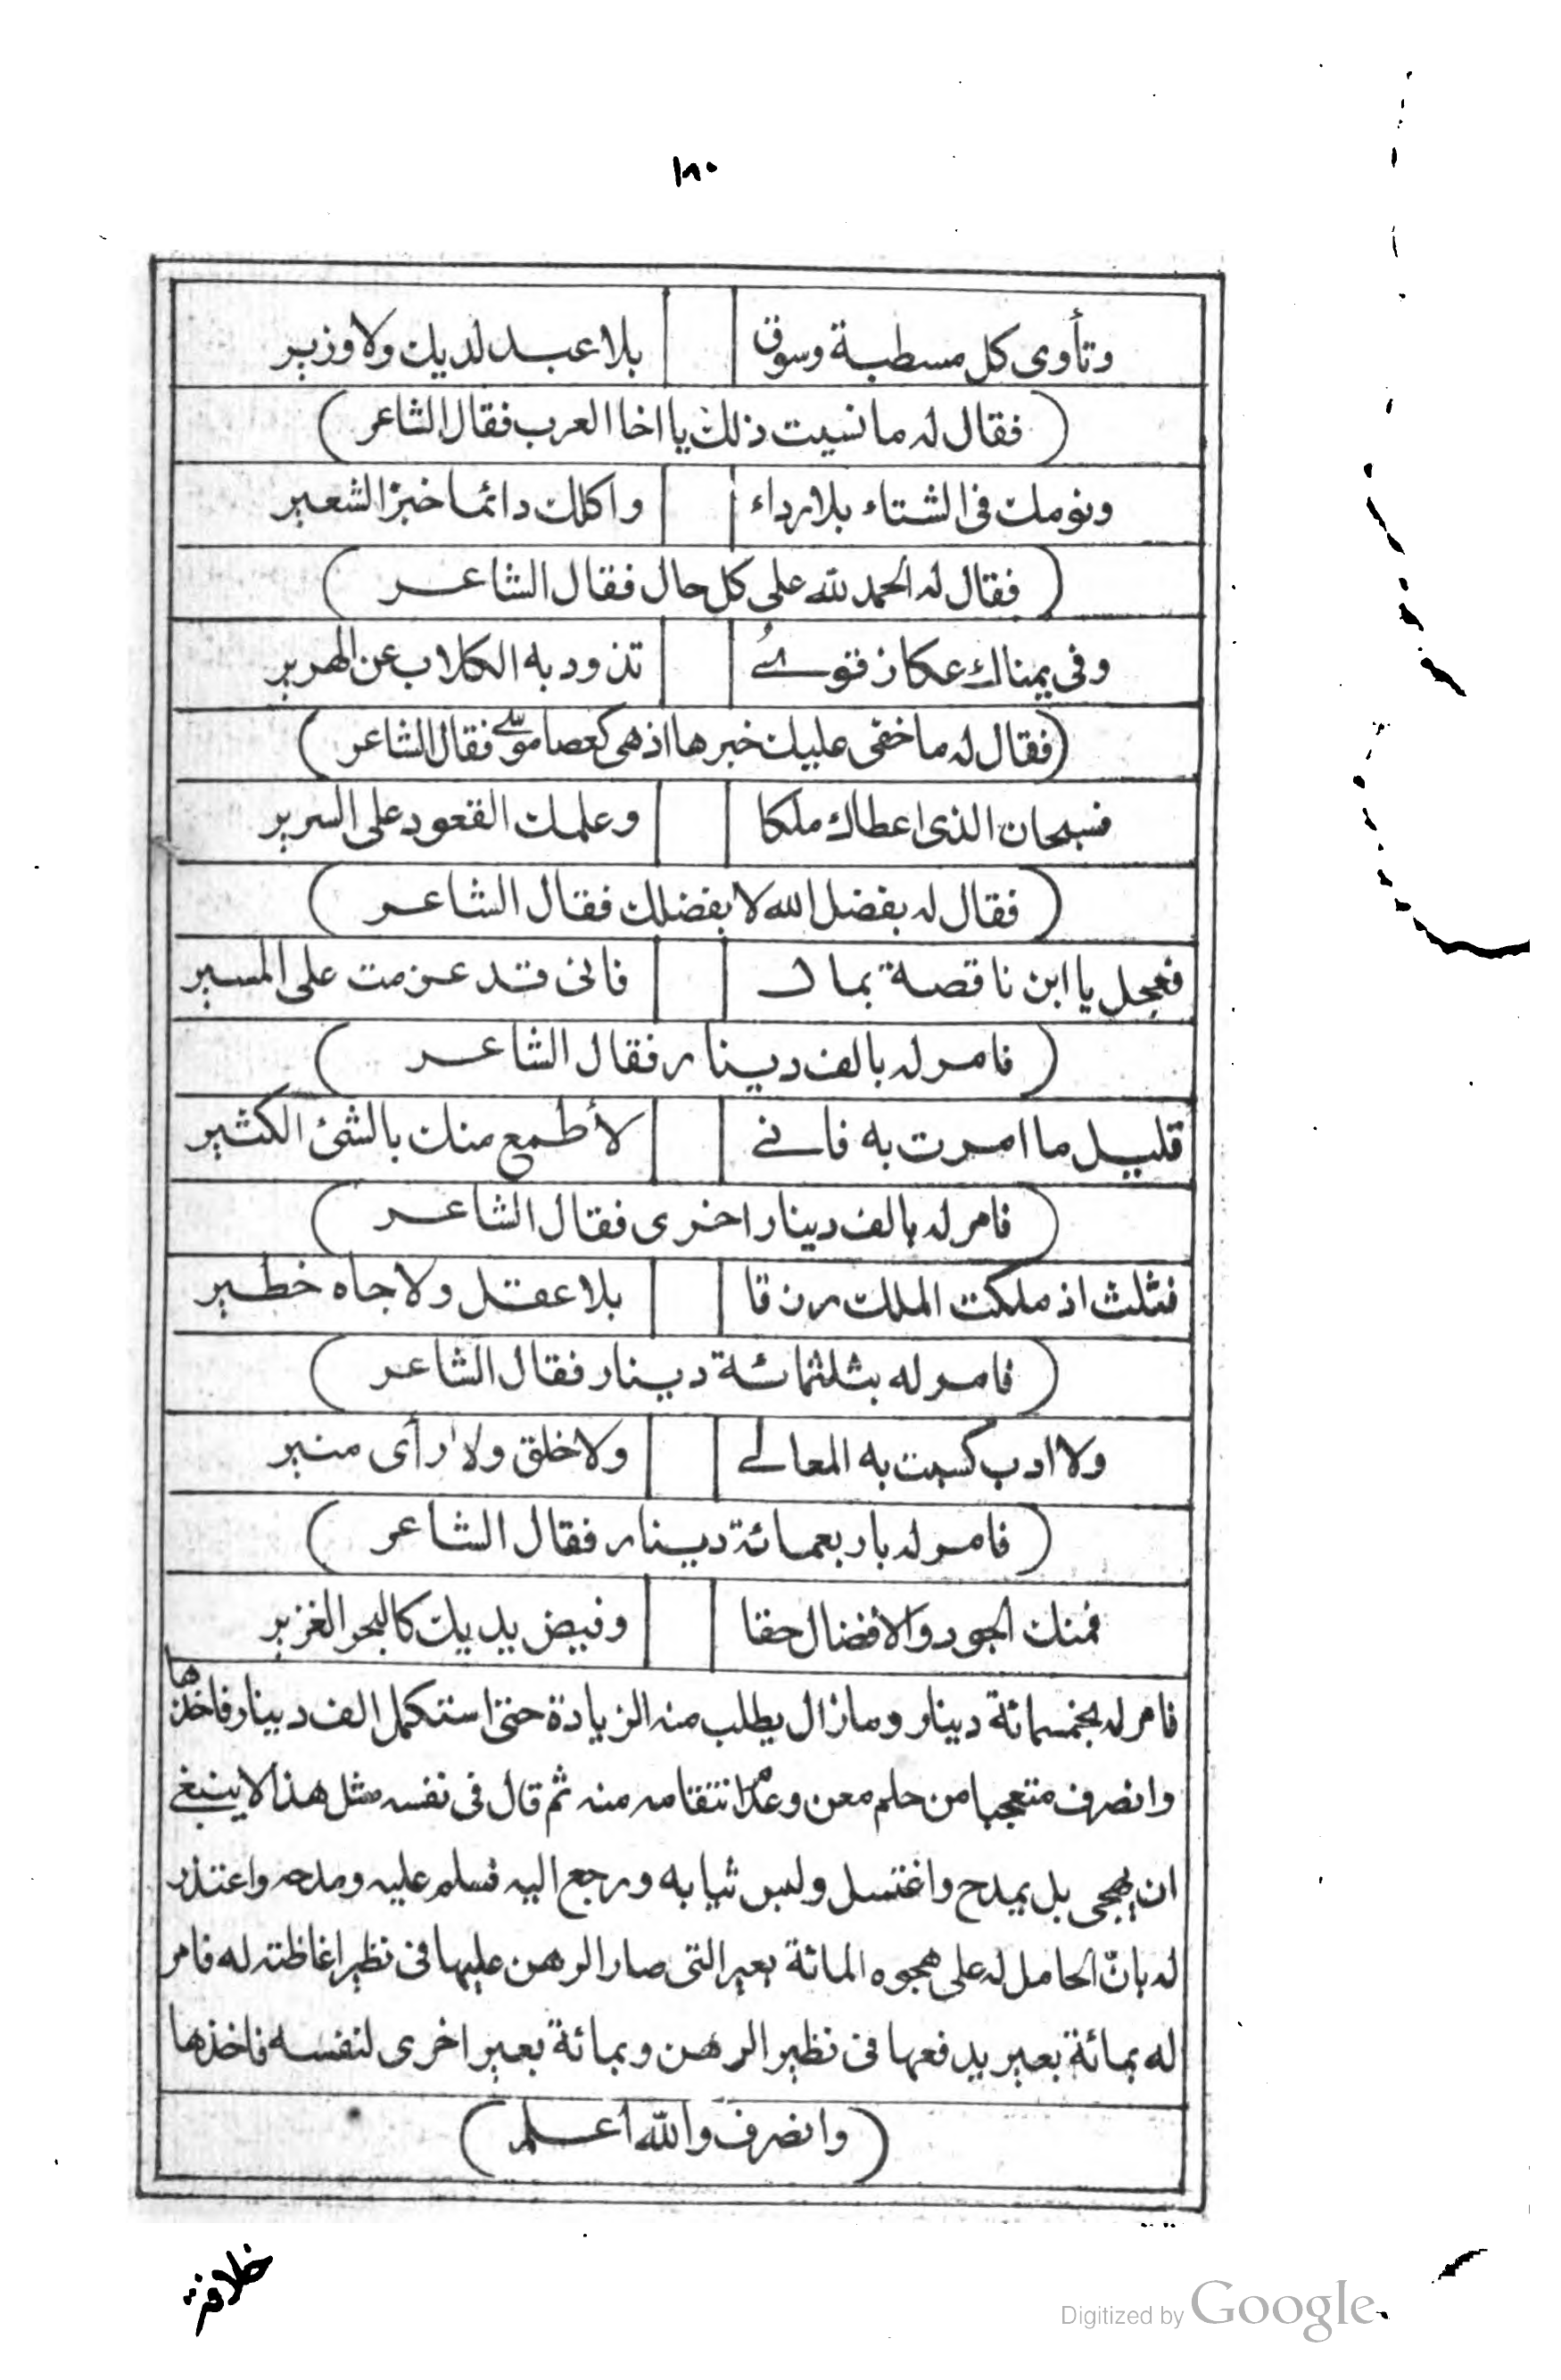 ١٨٠
وتأوى كل مسطبة وسوق بلا عبد لديك ولا وزير
( فقال له ما نسيت ذلك يا اخا العرب فقال الشاعر )
ونومك فى الشتاء بلا رداء واكلك دائما خبز الشعير
( فقال له الحمد لله على كل حال فقال الشاعر )
وفى يمناك عكاز قوىٌ تذود به الكلاب عن الهرير
( فقال له ما خفى عليك خبرها اذ هى كعصا موسى فقال الشاعر )
فسبحان الذى اعطاك ملكا وعلمك القعود على السرير
( فقال له بفضل الله لا بفضلك فقال الشاعر )
فعجل يا ابن ناقصة بمال فانى قد عزمت على المسير
( فامر له بالف دينار فقال الشاعر )
قليل ما امرت به فانى لأطمع منك بالشئ الكثير
( فامر له بالف دينار اخرى فقال الشاعر )
فثلث اذ ملكت الملك رزقا بلا عقل ولا جاه خطير
( فامر له بثلثمائة دينار فقال الشاعر )
ولا ادب كسبت به المعالى ولا خلق ولا رأى منير
( فامر له باربعمائة دينار فقال الشاعر )
فمنك الجود والافضال حقا وفيض يديك كالبحر الغزير
فامر له بخمسمائة دينار وما زال يطلب منه الزيادة حتى استكمل الف دينار فاخذها
وانصرف متعجبا من حلم معن وعدم انتقامه منه ثم قال فى نفسه مثل هذا لا ينبغى
ان يهجى بل يمدح واغتسل ولبس ثيابه ورجع اليه فسلم عليه ومدحه واعتذر
له بانّ الحامل له على هجوه المائة بعير التى صار الرهن عليها فى نظير اغاظته له فامر
له بمائة بعير يدفعها فى نظير الرهن وبمائة بعير اخرى لنفسه فاخذها
( وانصرف والله اعلم )
خلافة
Digitized by Google